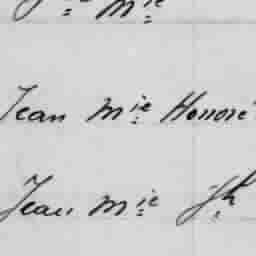 Mie
Jean Mie Honoré
Jean Mie Jh